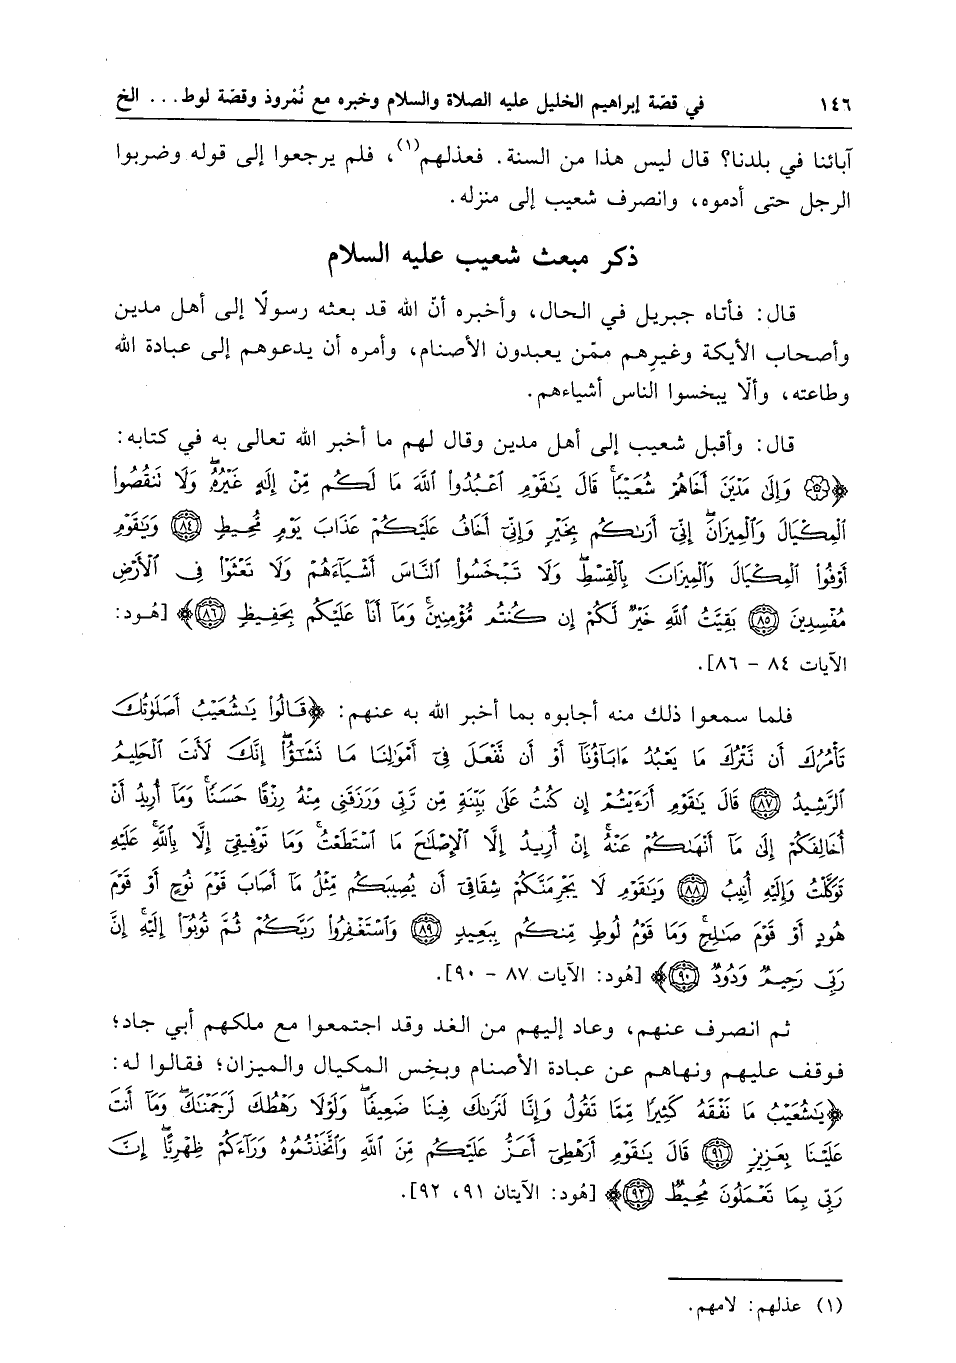 ١٤٦ في قصّة إبراهيم الخليل عليه الصلاة والسلام وخبره مع نُمْروذ وقصّة لوط... الخ
آبائنا في بلدنا؟ قال ليس هذا من السنة. فعذلهم(١)، فلم يرجعوا إلى قوله وضربوا
الرجل حتى أدموه، وانصرف شعيب إلى منزله.
ذكر مبعث شعيب عليه السلام
قال: فأتاه جبريل في الحال، وأخبره أنّ الله قد بعثه رسولًا إلى أهل مدين
وأصحاب الأيكة وغيرِهم ممّن يعبدون الأصنام، وأمره أن يدعوهم إلى عبادة الله
وطاعته، وألّا يبخسوا الناس أشياءهم.
قال: وأقبل شعيب إلى أهل مدين وقال لهم ما أخبر الله تعالى به في كتابه:
﴿۞ وَإِلَىٰ مَدْيَنَ أَخَاهُمْ شُعَيْبًا ۚ قَالَ يَـٰقَوْمِ ٱعْبُدُوا۟ ٱللَّهَ مَا لَكُم مِّنْ إِلَـٰهٍ غَيْرُهُۥ ۖ وَلَا تَنقُصُوا۟
ٱلْمِكْيَالَ وَٱلْمِيزَانَ ۖ إِنِّىٓ أَرَىٰكُم بِخَيْرٍ وَإِنِّىٓ أَخَافُ عَلَيْكُمْ عَذَابَ يَوْمٍ مُّحِيطٍ (٨٤) وَيَـٰقَوْمِ
أَوْفُوا۟ ٱلْمِكْيَالَ وَٱلْمِيزَانَ بِٱلْقِسْطِ ۖ وَلَا تَبْخَسُوا۟ ٱلنَّاسَ أَشْيَآءَهُمْ وَلَا تَعْثَوْا۟ فِى ٱلْأَرْضِ
مُفْسِدِينَ (٨٥) بَقِيَّتُ ٱللَّهِ خَيْرٌ لَّكُمْ إِن كُنتُم مُّؤْمِنِينَ ۚ وَمَآ أَنَا۠ عَلَيْكُم بِحَفِيظٍ (٨٦)﴾ [هُود:
الآيات ٨٤ - ٨٦].
فلما سمعوا ذلك منه أجابوه بما أخبر الله به عنهم: ﴿قَالُوا۟ يَـٰشُعَيْبُ أَصَلَوٰتُكَ
تَأْمُرُكَ أَن نَّتْرُكَ مَا يَعْبُدُ ءَابَآؤُنَآ أَوْ أَن نَّفْعَلَ فِىٓ أَمْوَٰلِنَا مَا نَشَـٰٓؤُا۟ ۖ إِنَّكَ لَأَنتَ ٱلْحَلِيمُ
ٱلرَّشِيدُ (٨٧) قَالَ يَـٰقَوْمِ أَرَءَيْتُمْ إِن كُنتُ عَلَىٰ بَيِّنَةٍ مِّن رَّبِّى وَرَزَقَنِى مِنْهُ رِزْقًا حَسَنًا ۚ وَمَآ أُرِيدُ أَنْ
أُخَالِفَكُمْ إِلَىٰ مَآ أَنْهَىٰكُمْ عَنْهُ ۚ إِنْ أُرِيدُ إِلَّا ٱلْإِصْلَـٰحَ مَا ٱسْتَطَعْتُ ۚ وَمَا تَوْفِيقِىٓ إِلَّا بِٱللَّهِ ۚ عَلَيْهِ
تَوَكَّلْتُ وَإِلَيْهِ أُنِيبُ (٨٨) وَيَـٰقَوْمِ لَا يَجْرِمَنَّكُمْ شِقَاقِىٓ أَن يُصِيبَكُم مِّثْلُ مَآ أَصَابَ قَوْمَ نُوحٍ أَوْ قَوْمَ
هُودٍ أَوْ قَوْمَ صَـٰلِحٍ ۚ وَمَا قَوْمُ لُوطٍ مِّنكُم بِبَعِيدٍ (٨٩) وَٱسْتَغْفِرُوا۟ رَبَّكُمْ ثُمَّ تُوبُوٓا۟ إِلَيْهِ ۚ إِنَّ
رَبِّى رَحِيمٌ وَدُودٌ (٩٠)﴾ [هُود: الآيات ٨٧ - ٩٠].
ثم انصرف عنهم، وعاد إليهم من الغد وقد اجتمعوا مع ملكهم أبي جاد؛
فوقف عليهم ونهاهم عن عبادة الأصنام وبخِس المكيال والميزان؛ فقالوا له:
﴿يَـٰشُعَيْبُ مَا نَفْقَهُ كَثِيرًا مِّمَّا تَقُولُ وَإِنَّا لَنَرَىٰكَ فِينَا ضَعِيفًا ۖ وَلَوْلَا رَهْطُكَ لَرَجَمْنَـٰكَ ۖ وَمَآ أَنتَ
عَلَيْنَا بِعَزِيزٍ (٩١) قَالَ يَـٰقَوْمِ أَرَهْطِىٓ أَعَزُّ عَلَيْكُم مِّنَ ٱللَّهِ وَٱتَّخَذْتُمُوهُ وَرَآءَكُمْ ظِهْرِيًّا ۖ إِنَّ
رَبِّى بِمَا تَعْمَلُونَ مُحِيطٌ (٩٢)﴾ [هُود: الآيتان ٩١، ٩٢].
(١) عذلهم: لامهم.